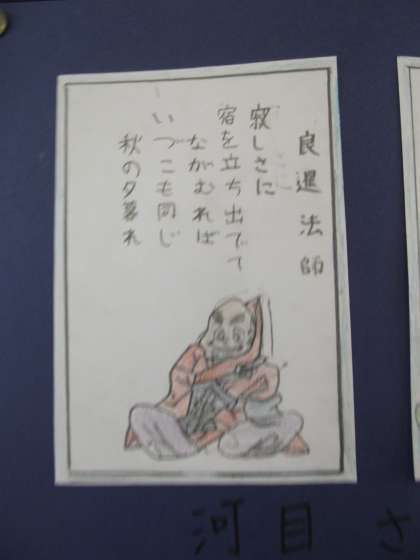 良暹法師
寂しさに
宿を立ち出でて
ながむれば
いづこも同じ
秋の夕暮れ
河目 さ